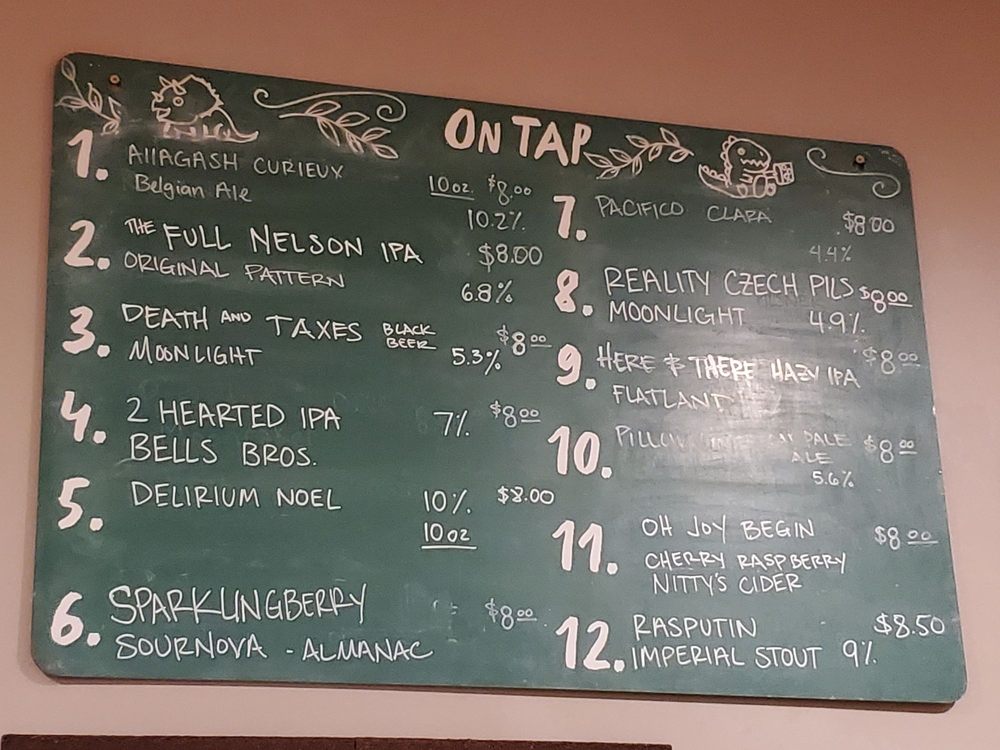 ON TAP
1. AllAGASH CURIEUX
Belgian Ale
10oz. $8.00
10.2%
2. THE FULL NELSON IPA $8.00
ORIGINAL PATTERN 6.8%
3. DEATH AND TAXES BLACK BEER $8.00
MOONLIGHT 5.3%
4. 2 HEARTED IPA 7% $8.00
BELLS BROS.
5. DELIRIUM NOEL 10% $8.00
10oz
6. SPARKLINGBERRY $8.00
SOURNOVA - ALMANAC
7. PACIFICO CLARA $8.00
4.4%
8. REALITY CZECH PILS $8.00
MOONLIGHT 4.9%
9. HERE & THERE HAZY IPA $8.00
FLATLAND
10. PALE $8.00
ALE
5.6%
11. OH JOY BEGIN $8.00
CHERRY RASPBERRY
NITTY'S CIDER
12. RASPUTIN $8.50
IMPERIAL STOUT 9%